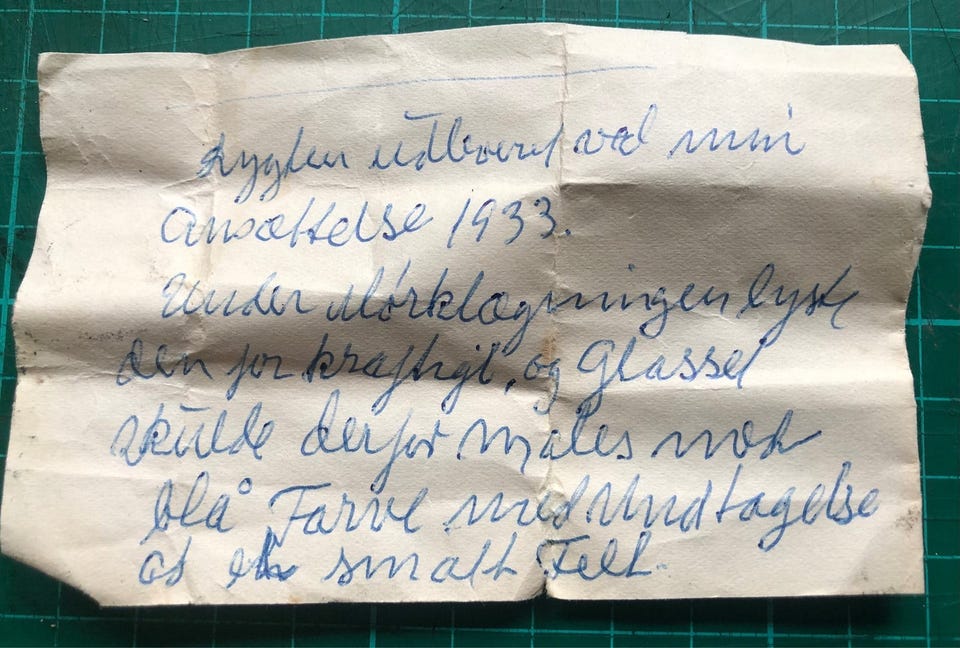 Lygten udleveret ved min
Ansættelse 1933.
Under Mørklægningen lyste
den for kraftigt, og Glasset
skulde derfor males med
blå Farve med Undtagelse
af et smalt Felt.